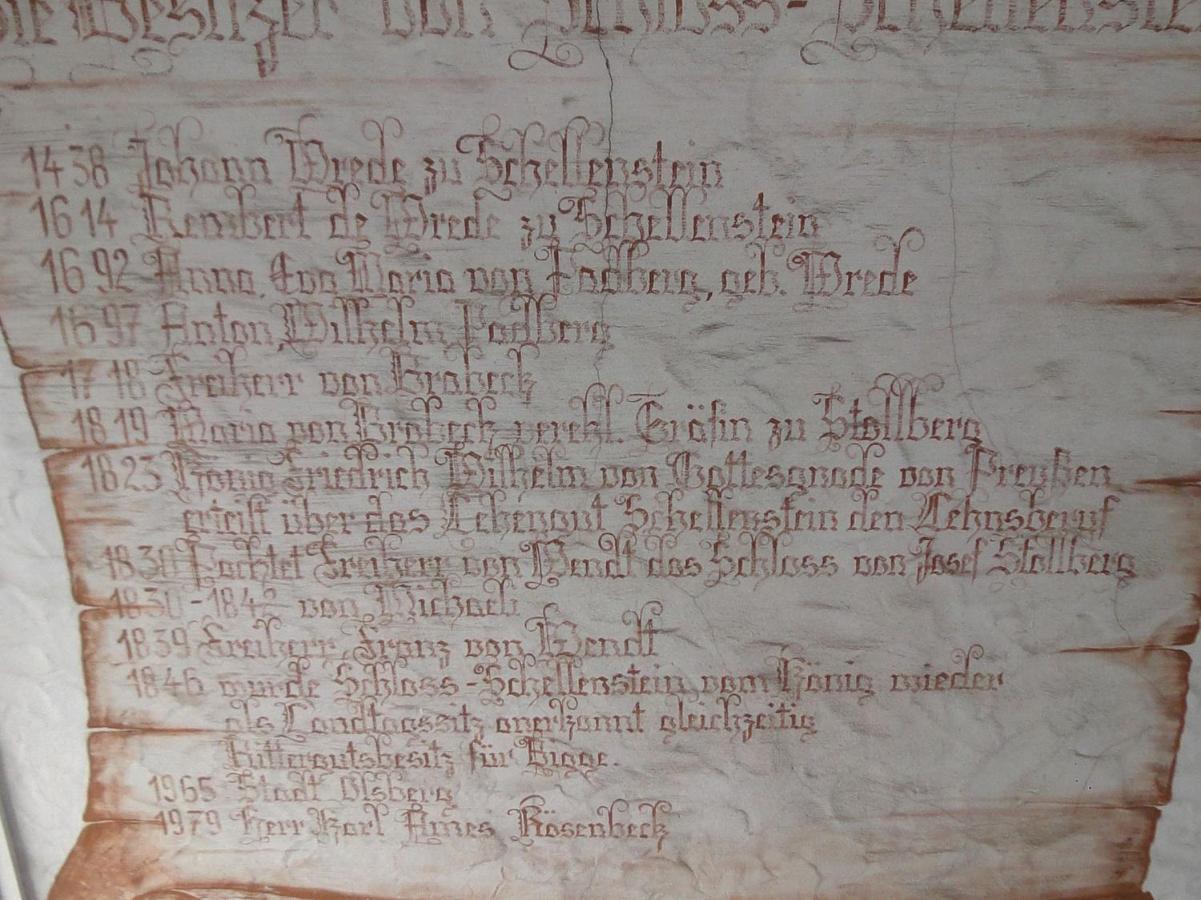 Die Besitzer von Schloss-Schellenste
1438 Johann Wrede zu Schellenstein
1614 Rembert de Wrede zu Schellenstein
1692 Anna, Eva Maria von Padberg, geb. Wrede
1697 Anton, Wilhelm Padberg
1718 Freiherr von Brabeck
1819 Maria von Brabeck verehl. Gräfin zu Stollberg
1823 König Friedrich Wilhelm von Gottesgnade von Preußen
erteilt über das Lehengut Schellenstein den Lehnsberuf
1830 Pachtet Freiherr von Wendt das Schloss von Josef Stollberg
1830-1842 von Michaeli
1839 Freiherr, Franz von Wendt
1846 wurde Schloss-Schellenstein vom König wieder
als Landtagssitz anerkannt gleichzeitig
Rittergutsbesitz für Bigge.
1965 Stadt Olsberg
1979 Herr Karl Ames Rösenbeck